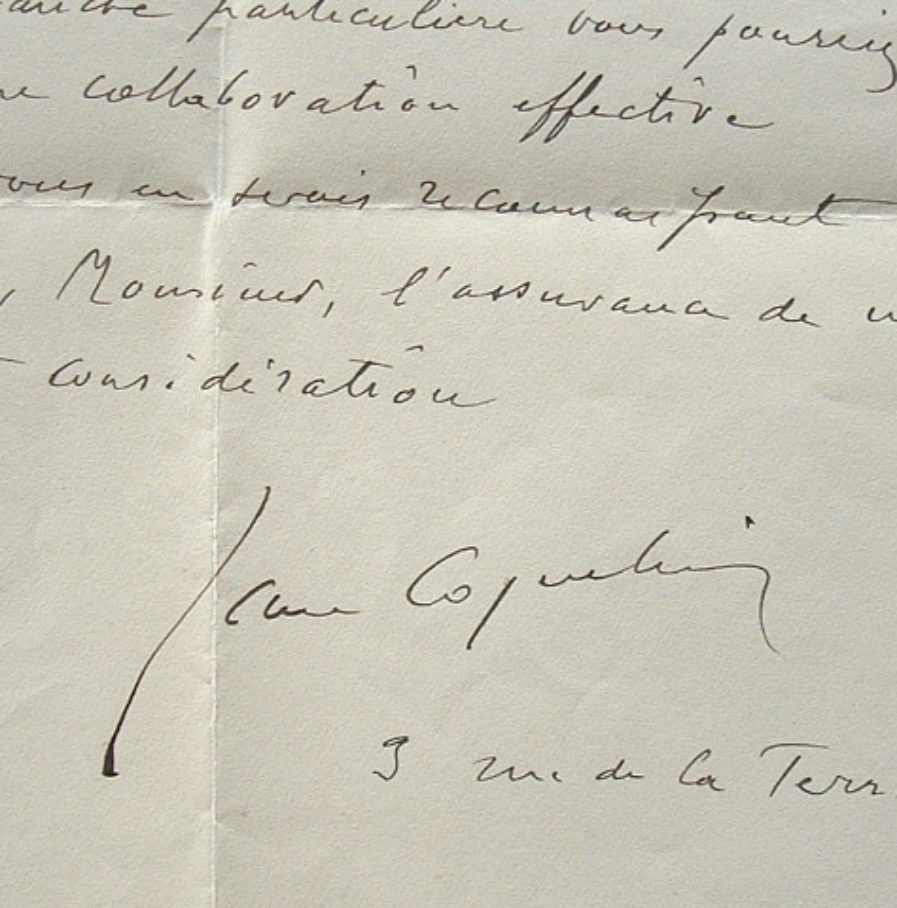 particulière vous pourriez
collaboration effective
vous en serais reconnaissant
, Monsieur, l'assurance de m
considération
Jean Coquelin
3 rue de la Terr